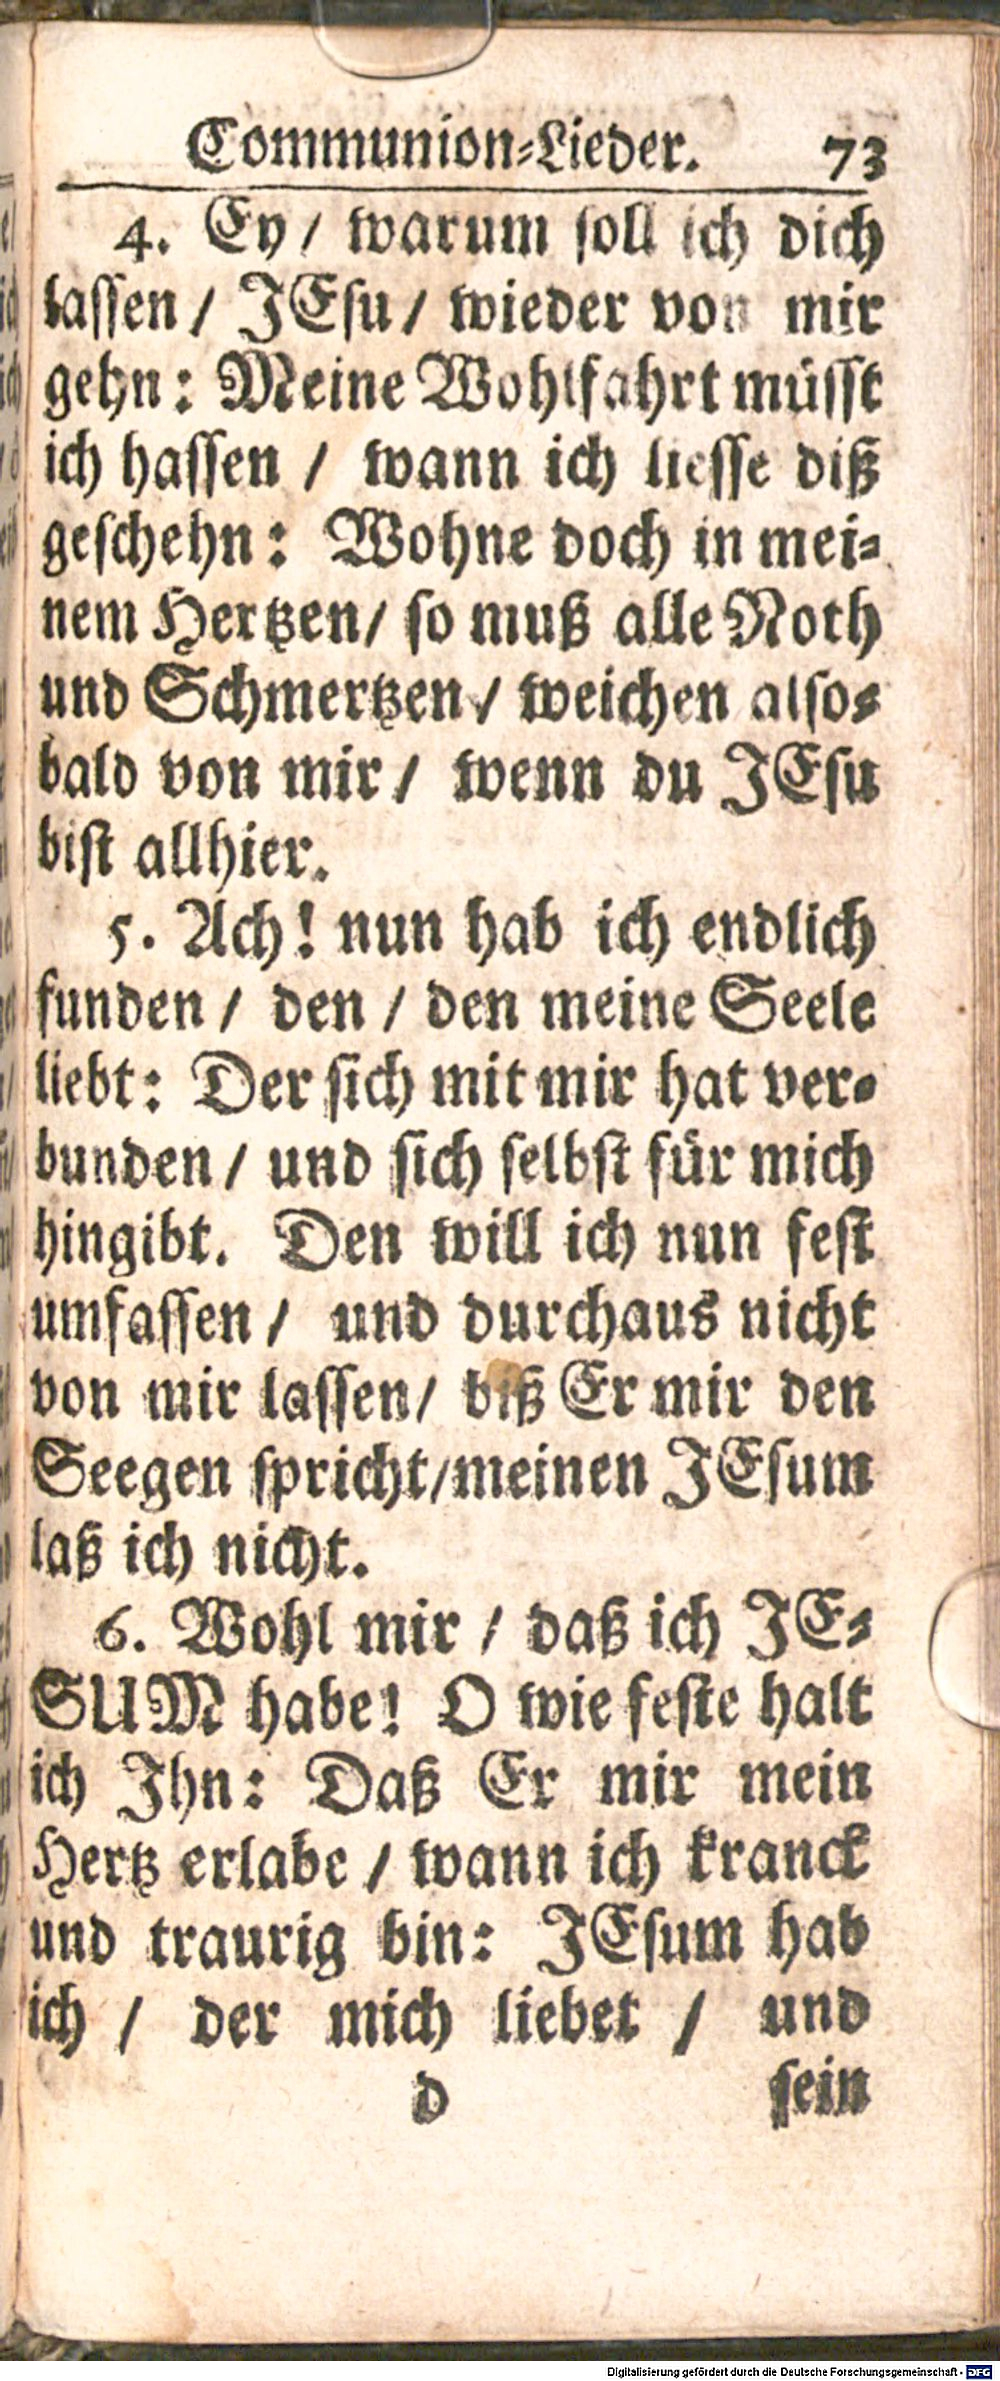 Communion-Lieder. 73
4. Ey / warum soll ich dich
lassen / JEsu / wieder von mir
gehn: Meine Wohlfahrt müsst
ich hassen / wann ich liesse diß
geschehn: Wohne doch in mei-
nem Hertzen / so muß alle Noth
und Schmertzen / weichen also-
bald von mir / wenn du JEsu
bist allhier.
5. Ach! nun hab ich endlich
funden / den / den meine Seele
liebt: Der sich mit mir hat ver-
bunden / und sich selbst für mich
hingibt. Den will ich nun fest
umfassen / und durchaus nicht
von mir lassen / biß Er mir den
Seegen spricht / meinen JEsum
laß ich nicht.
6. Wohl mir / daß ich JE-
SUM habe! O wie feste halt
ich Ihn: Daß Er mir mein
Hertz erlabe / wann ich kranck
und traurig bin: JEsum hab
ich / der mich liebet / und
d sein
Digitalisierung gefördert durch die Deutsche Forschungsgemeinschaft - DFG